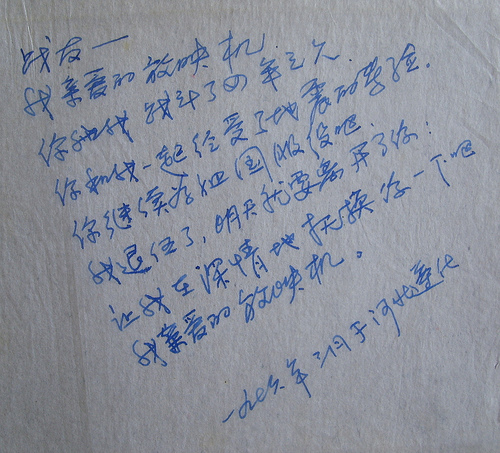 战友一
我亲爱的放映机.
你和我战斗了四年之久
你和我一起经受了地震的考验.
你继续为祖国服役吧.
我退伍了，明天就要离开了你：
让我在深情地抚摸你一下吧
我亲爱的放映机。
一九七六年 月于河北遵化